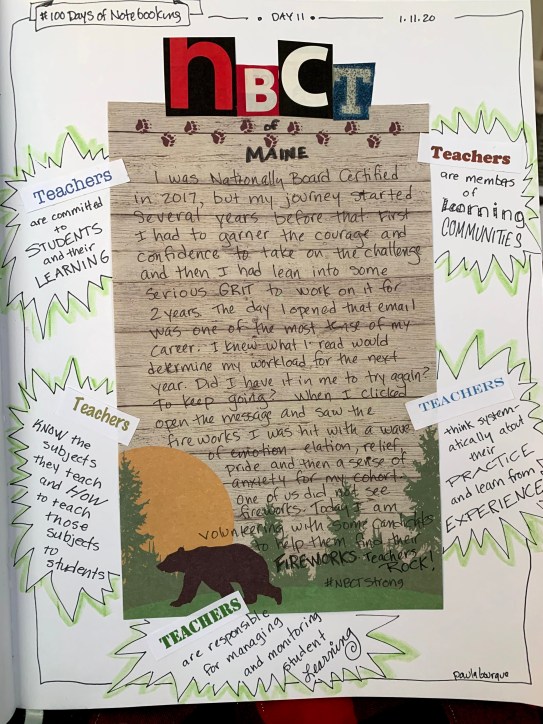 #100 Days of Notebooking
DAY 11
1.11.20
nBCT
of
MAINE
I was Nationally Board Certified
in 2017, but my journey started
several years before that. First
I had to garner the courage and
confidence to take on the challenge
and then I had lean into some
serious GRIT to work on it for
2 years. The day I opened that email
was one of the most of my
career. I knew what I read would
determine my workload for the next
year. Did I have it in me to try again?
To keep going? When I clicked
open the message and saw the
fireworks I was hit with a wave
of emotion elation, relief,
pride and then a sense of
anxiety for my cohort.
one of us did not see
fireworks. Today I am
volunteering with some candidates
to help them find their
FIREWORKS. Teachers
ROCK!
#NBCTStrong
Teachers
are committed
to
STUDENTS
and their
LEARNING
Teachers
are members
of
Learning
COMMUNITIES
Teachers
KNOW the
subjects
they teach
and HOW
to teach
those
subjects
to
students
TEACHERS
think system-
atically about
their
PRACTICE
and learn from
EXPERIENCE
TEACHERS
are responsible
for managing
and monitoring
student
Learning
paulabourque